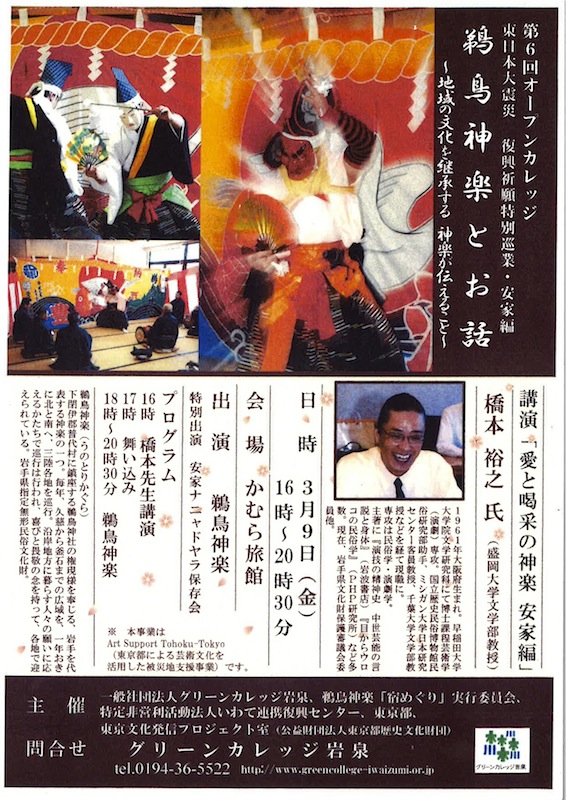 第6回オープンカレッジ
東日本大震災 復興祈願特別巡業・安家編
鵜鳥神楽とお話
〜地域の文化を継承する 神楽が伝えること〜
講演「愛と喝采の神楽 安家編」
橋本 裕之 氏（盛岡大学文学部教授）
1961年大阪府生まれ。早稲田大学
大学院文学研究科にて博士課程芸術学
（演劇）専攻、国立歴史民俗博物館民
俗研究部助手、ミシガン大学日本研究
センター客員教授、千葉大学文学部教
授などを経て現職に。
専攻は民俗学・演劇学。
主著に『演技の精神史 中世芸能の言
説と身体』（岩波書店）『目からウロ
コの民俗学』（PHP研究所）など多
数。現在、岩手県文化財保護審議会委
員他。
日 時 3月9日（金）
16時〜20時30分
会 場 かむら旅館
出 演 鵜鳥神楽
特別出演 安家ナニャドヤラ保存会
プログラム
16時 橋本先生講演
17時 舞い込み
18時〜20時30分 鵜鳥神楽
※ 本事業は
Art Support Tohoku-Tokyo
（東京都による芸術文化を
活用した被災地支援事業）です。
鵜鳥神楽（うのとりかぐら）
下閉伊郡普代村に鎮座する鵜鳥神社の権現様を奉じる、岩手を代
表する神楽の一つ。毎年、久慈から釜石までの広域を、一年おき
に北と南へ、三陸各地を巡行。沿岸地方に暮らす人々の願いに応
えるかたちで巡行は行われ、喜びと畏敬の念を持って、各地で迎
えられている。岩手県指定無形民俗文化財。
主 催 一般社団法人グリーンカレッジ岩泉、鵜鳥神楽「宿めぐり」実行委員会、
特定非営利活動法人いわて連携復興センター、東京都、
東京文化発信プロジェクト室（公益財団法人東京都歴史文化財団）
問合せ グリーンカレッジ岩泉
tel.0194-36-5522 http://www.greencollege-iwaizumi.or.jp
グリーンカレッジ岩泉